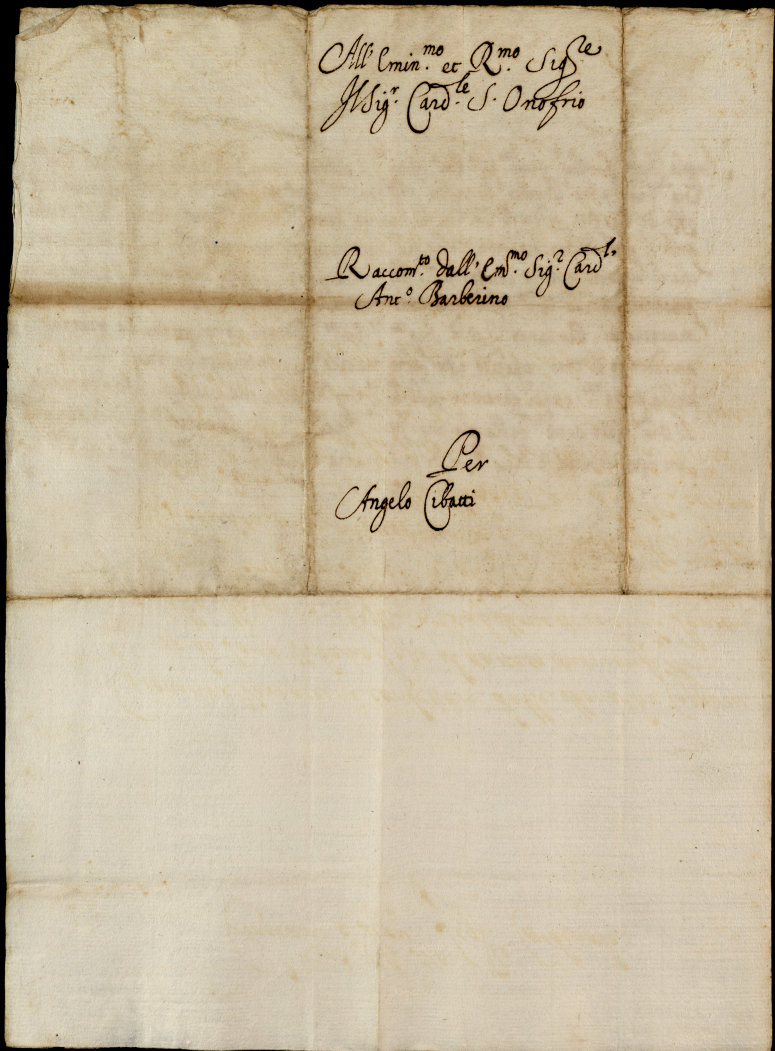 All' Emin.mo et R.mo Sigre
Il Sig.r Card.le S. Onofrio
Raccom.to dall' Em.mo Sig.r Card.l
Ant.o Barberino
Per
Angelo Cibatti